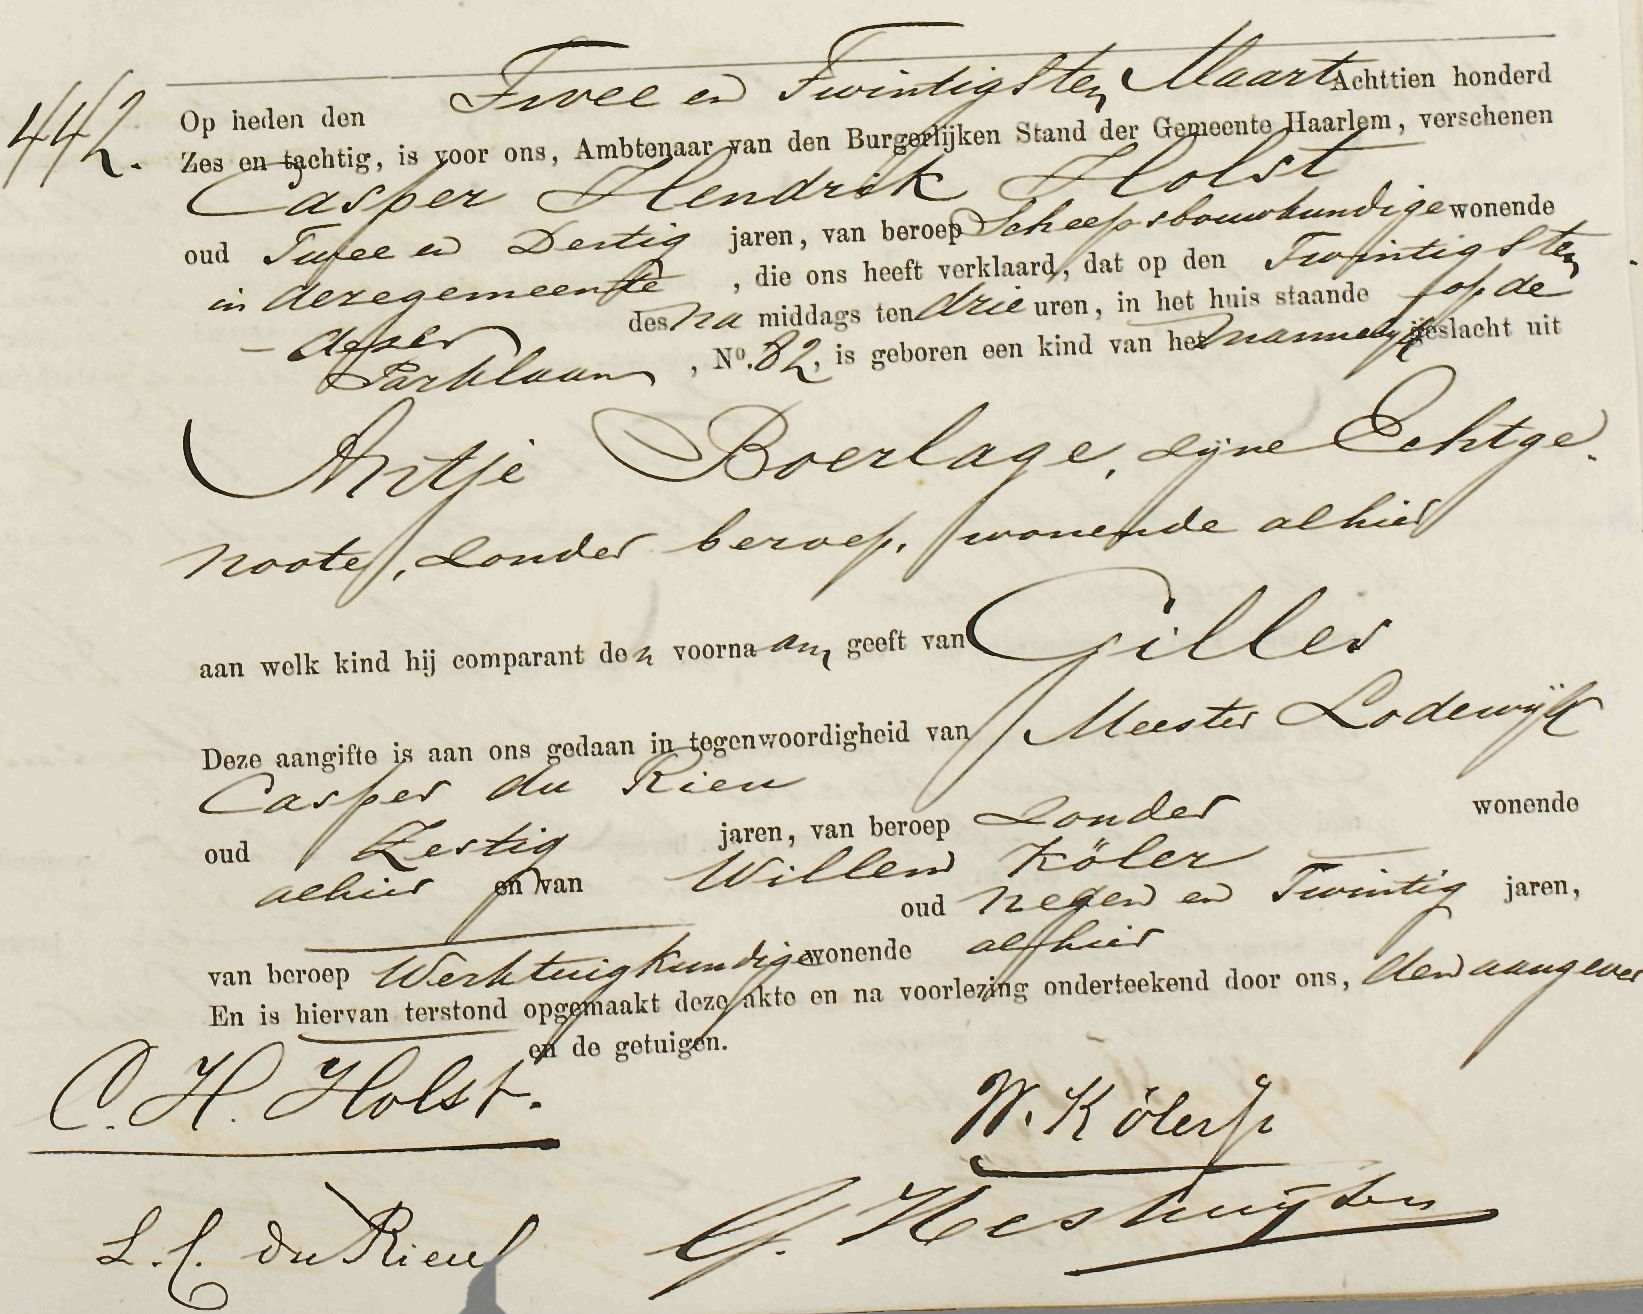 442.
Op heden den Twee en Twintigsten Maart Achttien honderd
Zes en tachtig, is voor ons, Ambtenaar van den Burgerlijken Stand der Gemeente Haarlem, verschenen
Casper Hendrik Holst
oud Twee en Dertig jaren, van beroep Scheepsbouwkundige wonende
in dezegemeente, die ons heeft verklaard, dat op den Twintigsten
dezer des na middags ten drie uren, in het huis staande op de
Parklaan, No. 82, is geboren een kind van het mannelijk geslacht uit
Antje Boerlage, zijne Echtge-
noote, zonder beroep, wonende alhier
aan welk kind hij comparant den voornaam geeft van Gilles
Deze aangifte is aan ons gedaan in tegenwoordigheid van Meester Lodewijk
Casper du Rieu
oud Zestig jaren, van beroep zonder wonende
alhier en van Willem Köler
oud negen en Twintig jaren,
van beroep Werktuigkundige wonende alhier
En is hiervan terstond opgemaakt deze akte en na voorlezing onderteekend door ons, den aangever
en de getuigen.
C. H. Holst.
W. Köler
L. C. du Rieu
G.